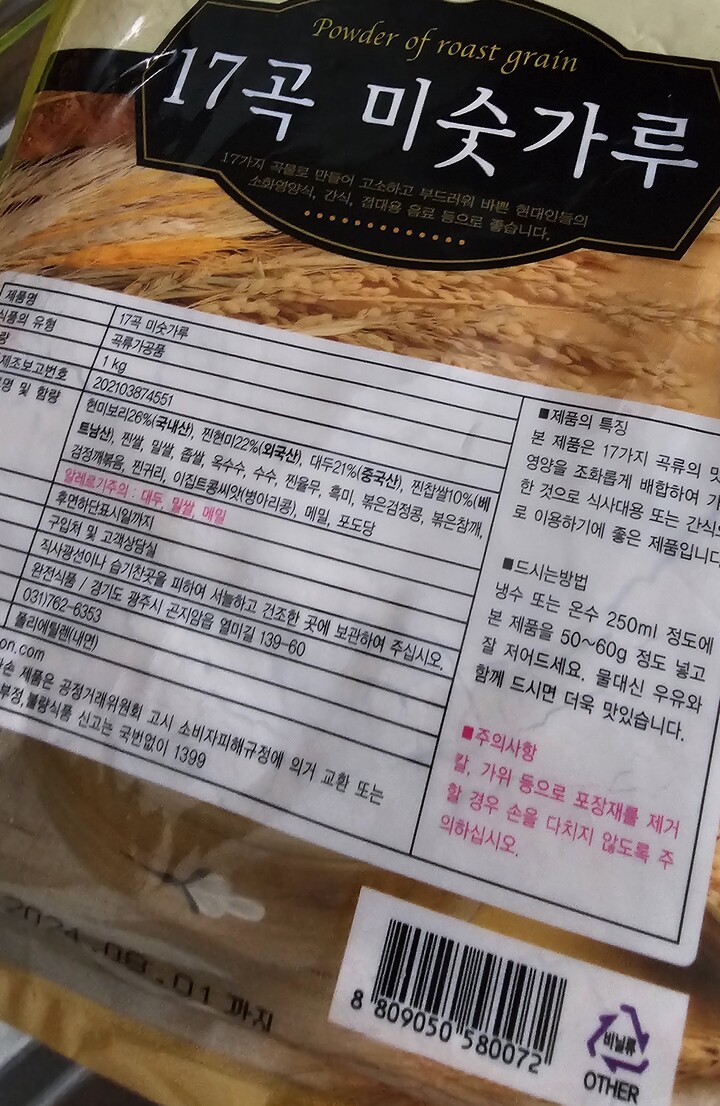 Powder of roast grain
17곡 미숫가루
17가지 곡물로 만들어 고소하고 부드러워 바쁜 현대인들의
소화영양식, 간식, 접대용 음료 등으로 좋습니다.
제품명 17곡 미숫가루
식품의 유형 곡류가공품
량 1 kg
제조보고번호 202103874551
명 및 함량 현미보리26%(국내산), 찐현미22%(외국산), 대두21%(중국산), 찐찹쌀10%(베
트남산), 찐쌀, 밀쌀, 좁쌀, 옥수수, 수수, 찐율무, 흑미, 볶은검정콩, 볶은참깨,
검정깨볶음, 찐귀리, 이집트콩씨앗(병아리콩), 메밀, 포도당
알레르기주의 : 대두, 밀쌀, 메밀
후면하단표시일까지
구입처 및 고객상담실
직사광선이나 습기찬곳을 피하여 서늘하고 건조한 곳에 보관하여 주십시오.
완전식품 / 경기도 광주시 곤지암읍 열미길 139-60
031)762-6353
폴리에틸렌(내면)
on.com
손 제품은 공정거래위원회 고시 소비자피해규정에 의거 교환 또는
부정,불량식품 신고는 국번없이 1399
■제품의 특징
본 제품은 17가지 곡류의 맛
영양을 조화롭게 배합하여
한 것으로 식사대용 또는 간식
로 이용하기에 좋은 제품입니다
■드시는방법
냉수 또는 온수 250ml 정도에
본 제품을 50~60g 정도 넣고
잘 저어드세요. 물대신 우유와
함께 드시면 더욱 맛있습니다.
■주의사항
칼, 가위 등으로 포장재를 제거
할 경우 손을 다치지 않도록 주
의하십시오.
2024.08.01 까지
8 809050 580072
비닐류
OTHER